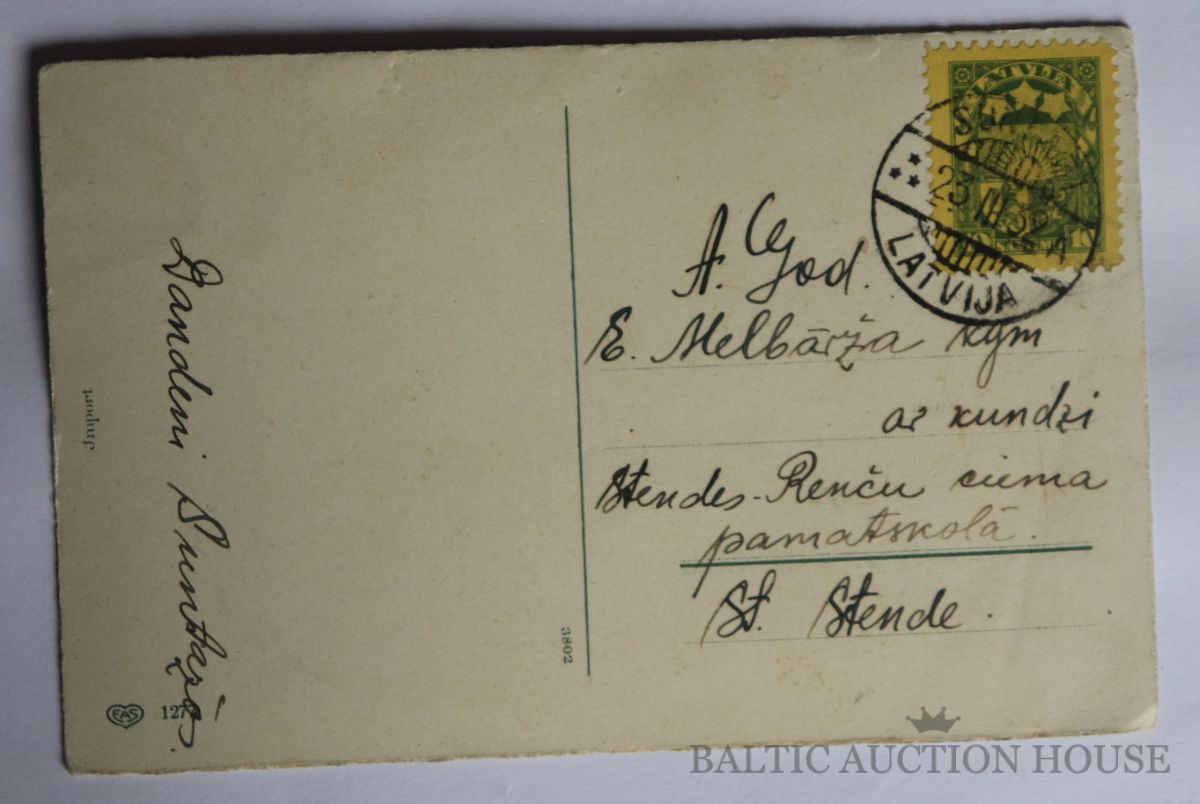 LATVIJAS
23 III 32 A
LATVIJA
10
A. God.
E. Melbārža kgm
ar kundzi
Stendes-Renču ciema
pamatskolā.
St. Stende.
Dandeni Suntažos.
Import
3802
EAS
127
BALTIC AUCTION HOUSE